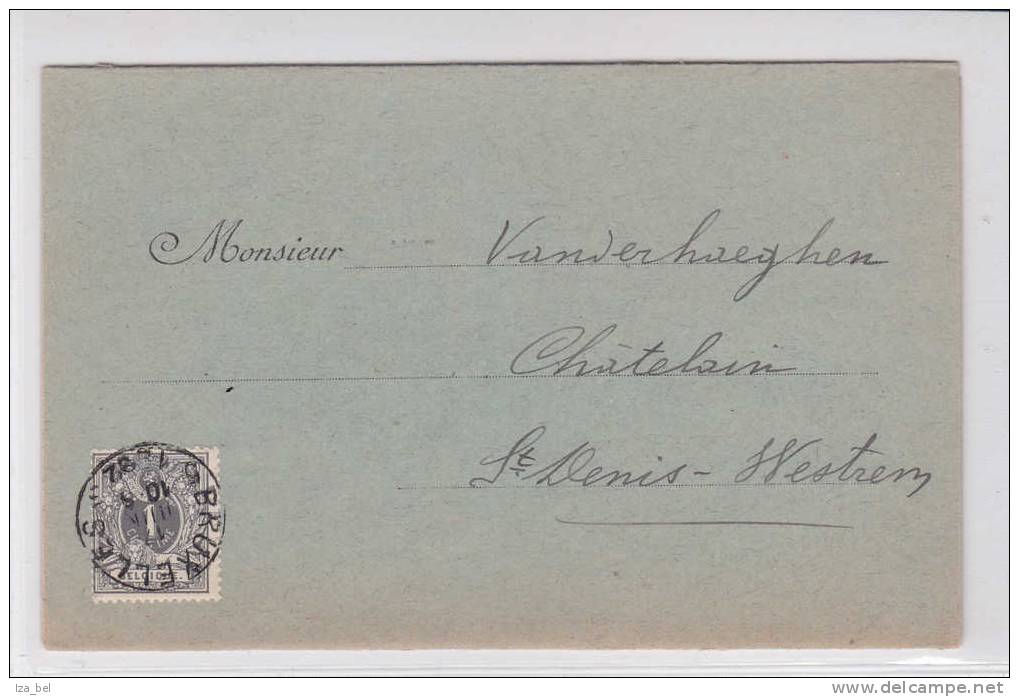 Monsieur Vanderhaeghen
Châtelain
St. Denis-Westrem
BRUXELLES
1
BELGIQUE
lza_bel
www.delcampe.net